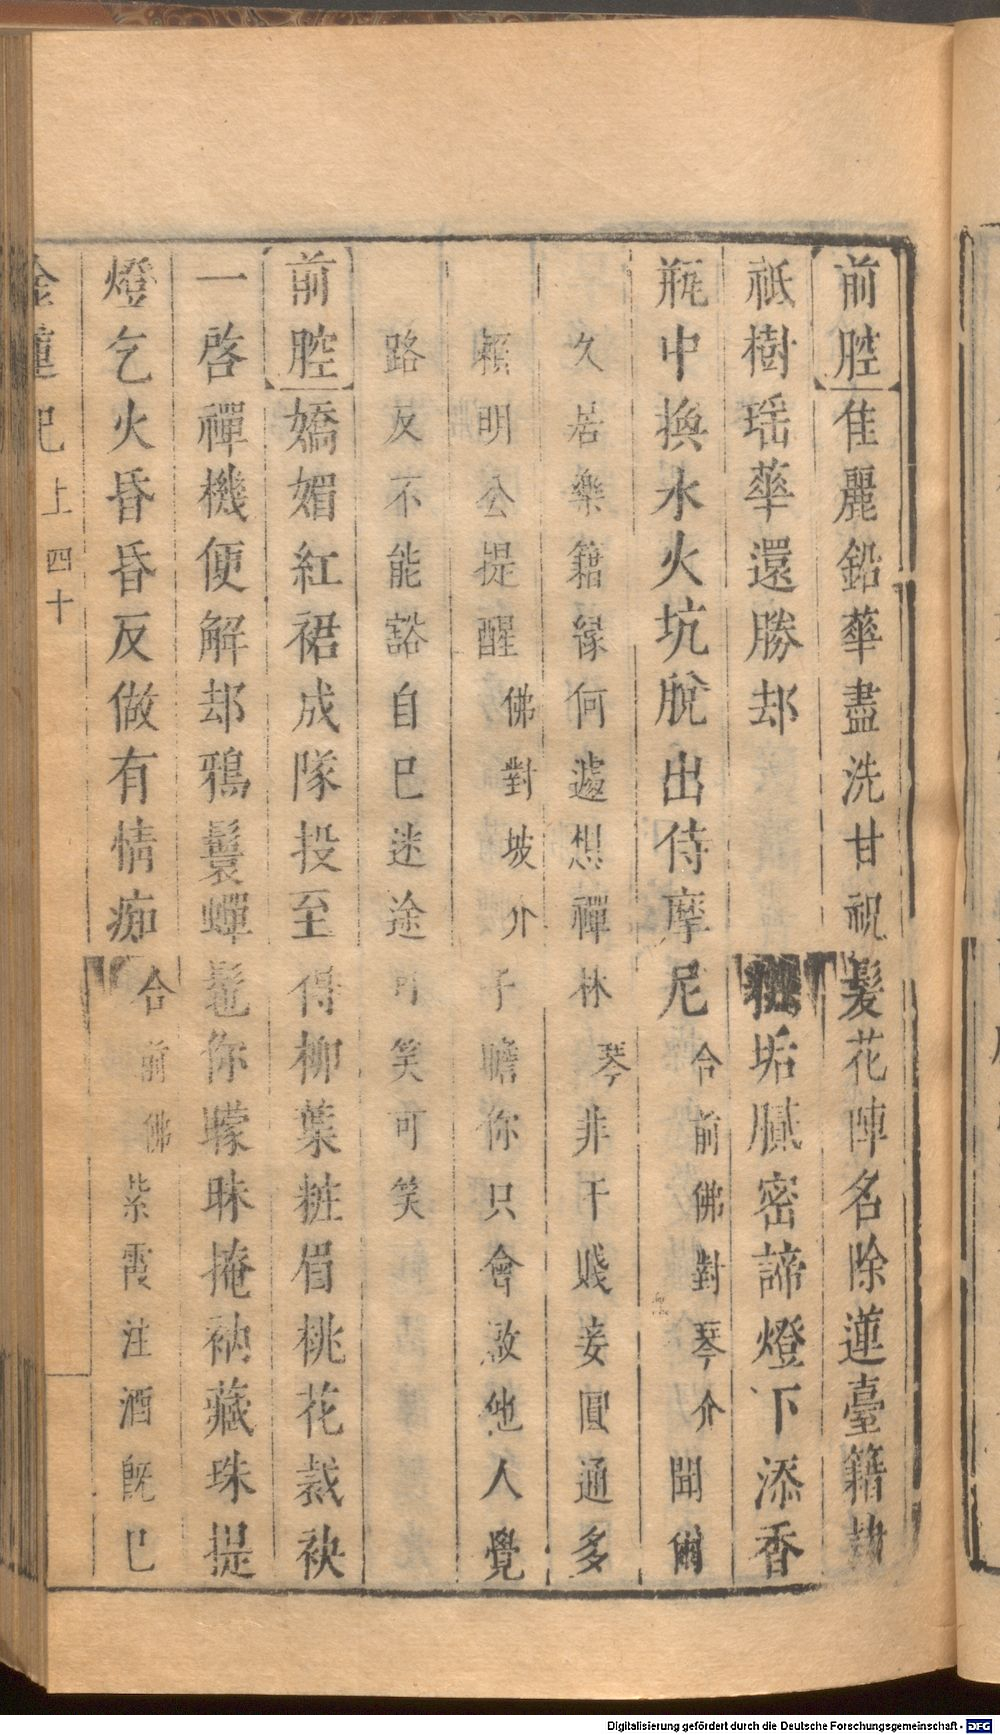 前腔佳麗鉛華盡洗甘祝髮花陣名除蓮臺籍
祇樹瑶華還勝却垢膩密諦燈下添香
瓶中換水火坑脫出侍摩尼合前佛對琴介聞爾
久居樂籍緣何遽想禪林琴非干賤妾圓通多
賴明公提醒佛對坡介子瞻你只會啟他人覺
路反不能豁自巳迷途可笑可笑
前腔嬌媚紅裙成隊投至得柳葉粧眉桃花裁袂
一啓禪機便解却鴉鬟蟬鬢你矇昧掩袂藏珠提
燈乞火昏昏反做有情痴合前佛紫霞注酒旣巳
金蓮記上四十
Digitalisierung gefördert durch die Deutsche Forschungsgemeinschaft - DFG